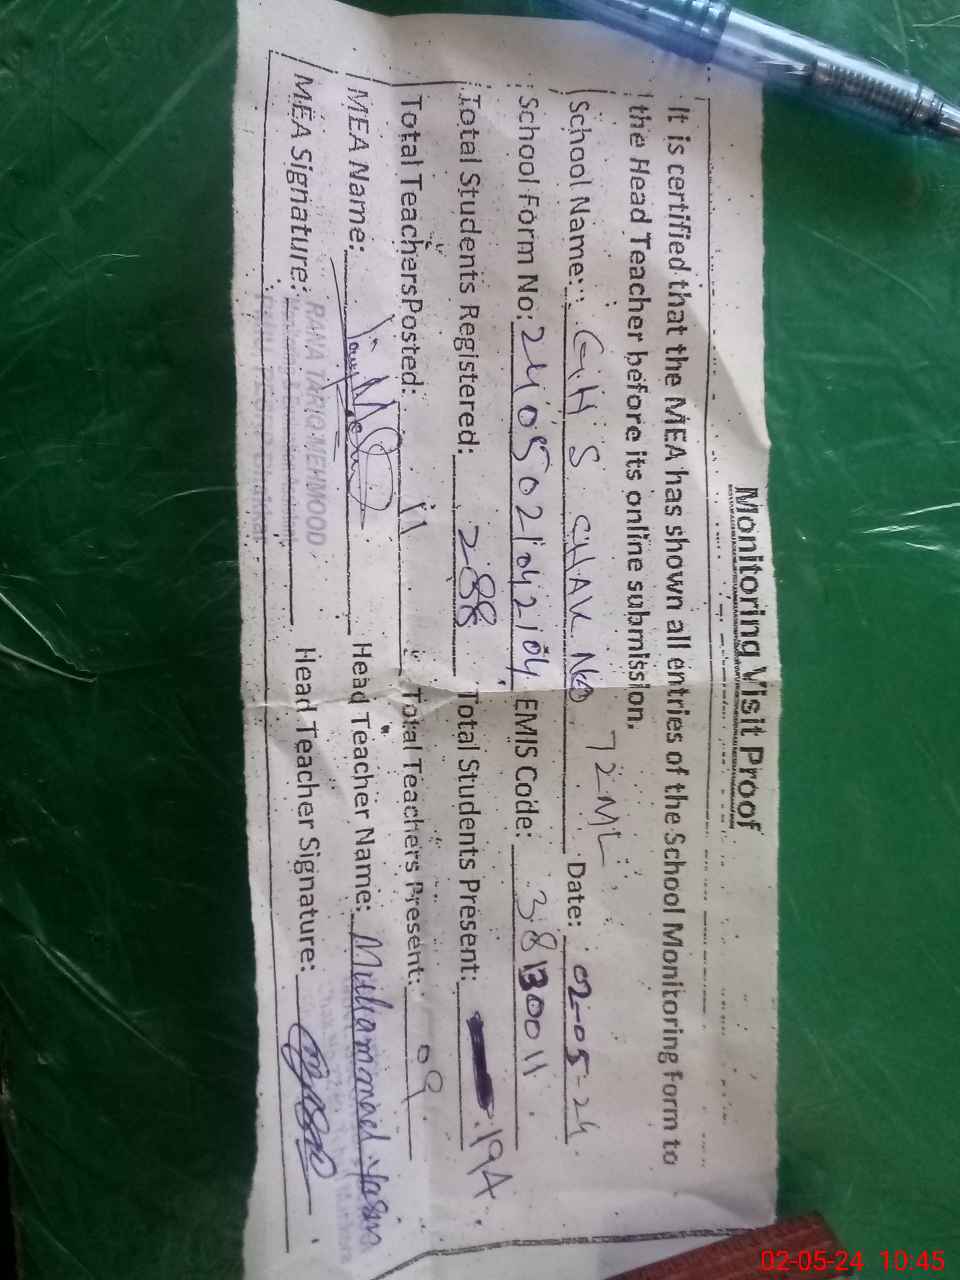 Monitoring Visit Proof
It is certified that the MEA has shown all entries of the School Monitoring Form to
the Head Teacher before its online submission.
School Name: GHS CHAK NO. 72 ML Date: 02-05-24
School Form No: 2405021042104 EMIS Code: 38130011
Total Students Registered: 288 Total Students Present: 194
Total Teachers Posted: 11 Total Teachers Present: 09
MEA Name: Head Teacher Name: Muhammad Yasin
RANA TARIQ MEHMOOD
MEA Signature: Head Teacher Signature:
02-05-24 10:45